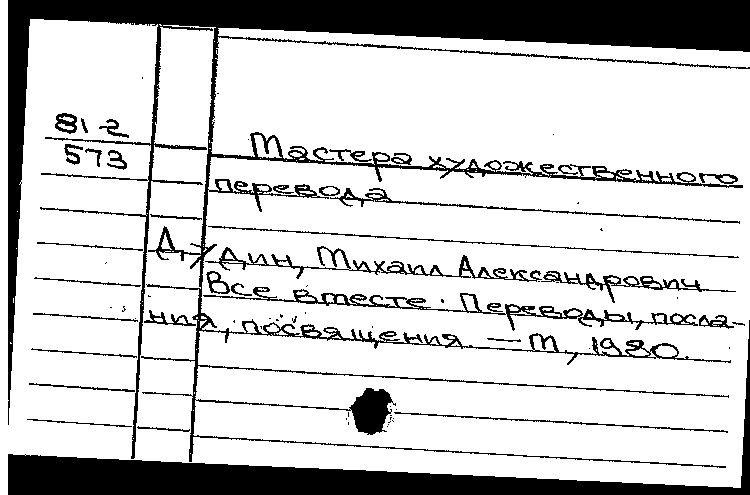 81-2
573
Мастера художественного
перевода
Дудин, Михаил Александрович
Все вместе. Переводы, посла-
ния, посвящения. — М, 1980.